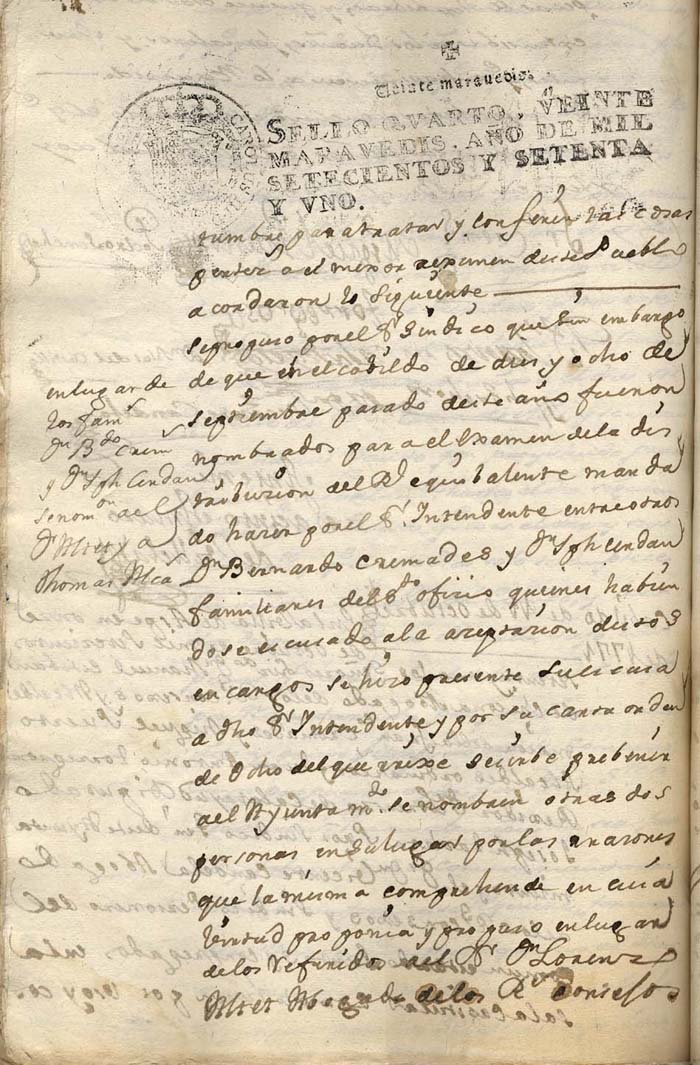 Veinte maravedis.
SELLO QVARTO, VEINTE
MARAVEDIS, AÑO DE MIL
SETECIENTOS Y SETENTA
Y VNO.
CAROLUS
tumbre para tratar y conferir las cosas
a el mexor reximen deste Pueblo
acordaron lo siguiente
se propuso por el Sr. Sindico que sin embargo
de que en el cavildo de dies y ocho de
septiembre pasado deste año fueron
nombrados para el examen de la dis
tribucion del Rl equibalente manda
do hacer por el Sr. Intendente entre otros
Dn Bernardo Cremades y Dn Jph Cerdan
familiares del Sto oficio quienes habien
dose escusado a la aceptacion de
encargos se hizo presente su escusa
a dho Sr Intendente y por su carta orden
de Ocho del que rixe se sirbe prebenir
a el Ayuntamto. se nombren otras dos
personas en su lugar por las rrazones
que la misma comprehende en cuia
virtud proponia y propuso en lugar
de los referidos al Dr. Dn Lorenzo
Mret Abogado de los Rs consejos
en lugar de
los fams
Dn Bdo Crem
y Dn Jph Cerdan
se nomon a el
Dr Mret y a
Thomas Mca